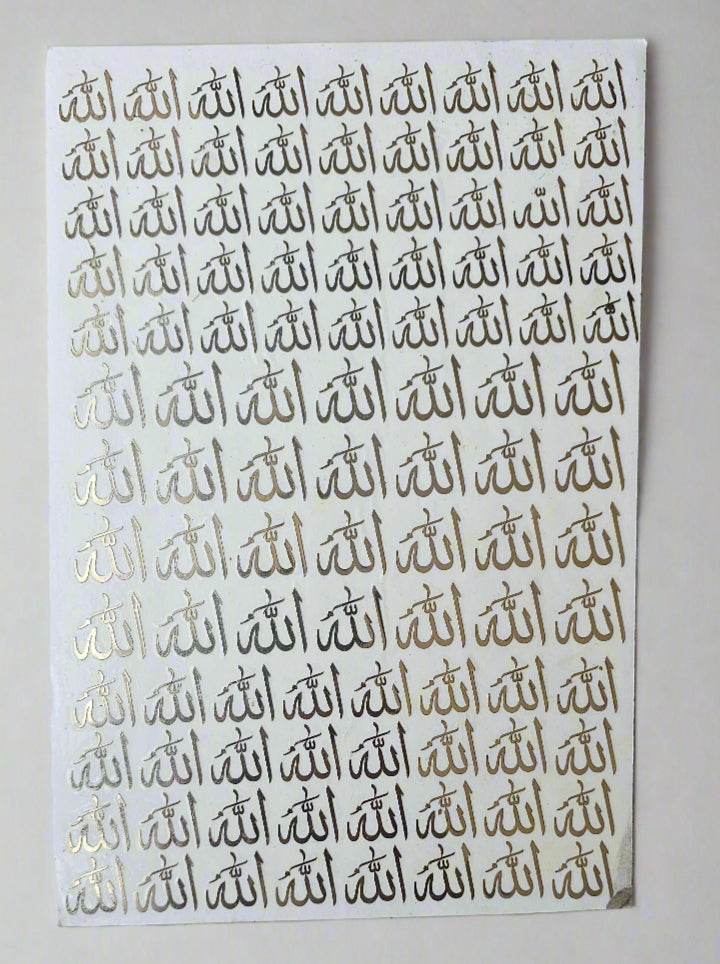 الله الله الله الله الله الله الله الله الله
الله الله الله الله الله الله الله الله الله
الله الله الله الله الله الله الله الله الله
الله الله الله الله الله الله الله الله الله
الله الله الله الله الله الله الله الله الله
الله الله الله الله الله الله الله
الله الله الله الله الله الله الله
الله الله الله الله الله الله الله
الله الله الله الله الله الله الله
الله الله الله الله الله الله الله الله
الله الله الله الله الله الله الله الله
الله الله الله الله الله الله الله الله
الله الله الله الله الله الله الله الله